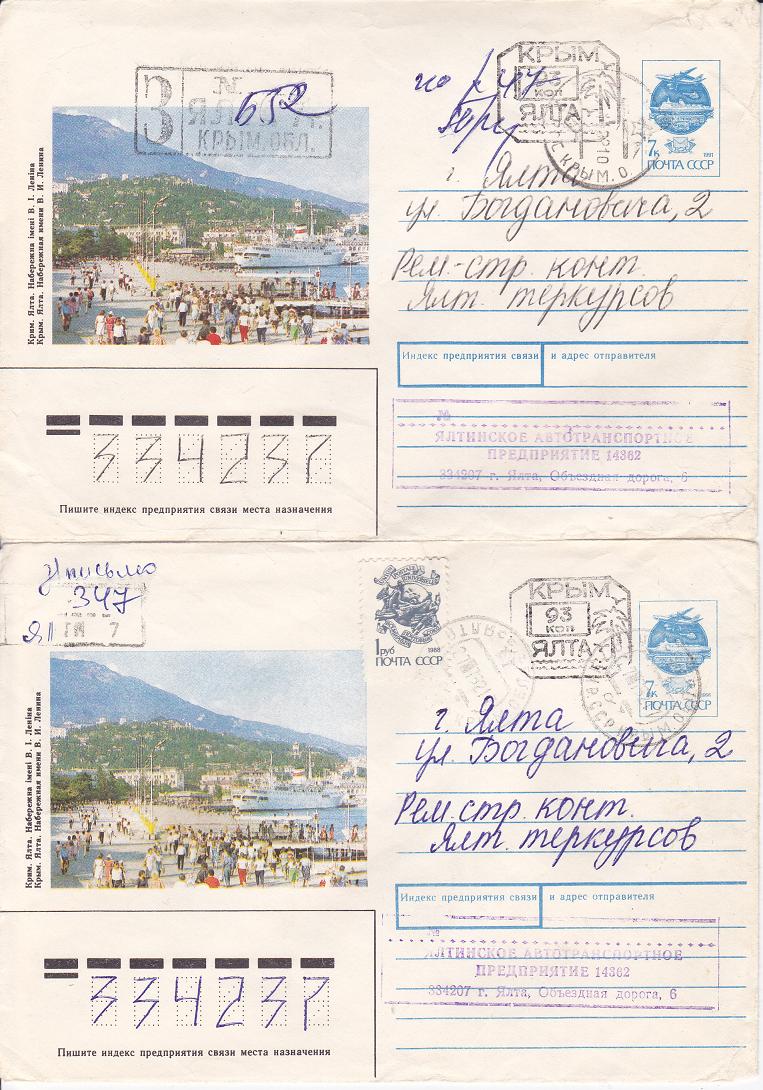 З
№
552
КРЫМ.ОБЛ.
КРЫМ
93
КОП
ЯЛТА
7к
1991
ПОЧТА СССР
КРЫМ.О
г. Ялта
ул. Богдановича, 2
Рем.-стр. конт.
Ялт. теркурсов
Крим. Ялта. Набережна імені В. І. Леніна
Крым. Ялта. Набережная имени В. И. Ленина
Индекс предприятия связи и адрес отправителя
№
ЯЛТИНСКОЕ АВТОТРАНСПОРТНОЕ
ПРЕДПРИЯТИЕ 14362
334207 г. Ялта, Объездная дорога, 6
334237
Пишите индекс предприятия связи места назначения
347
ЯЛ
7
1 руб
1988
ПОЧТА СССР
КРЫМ
93
КОП
ЯЛТА
7к
ПОЧТА СССР
г. Ялта
ул. Богдановича, 2
Рем. стр. конт.
Ялт. теркурсов
Крим. Ялта. Набережна імені В. І. Леніна
Крым. Ялта. Набережная имени В. И. Ленина
Индекс предприятия связи и адрес отправителя
№
ЯЛТИНСКОЕ АВТОТРАНСПОРТНОЕ
ПРЕДПРИЯТИЕ 14362
334207 г. Ялта, Объездная дорога, 6
334237
Пишите индекс предприятия связи места назначения